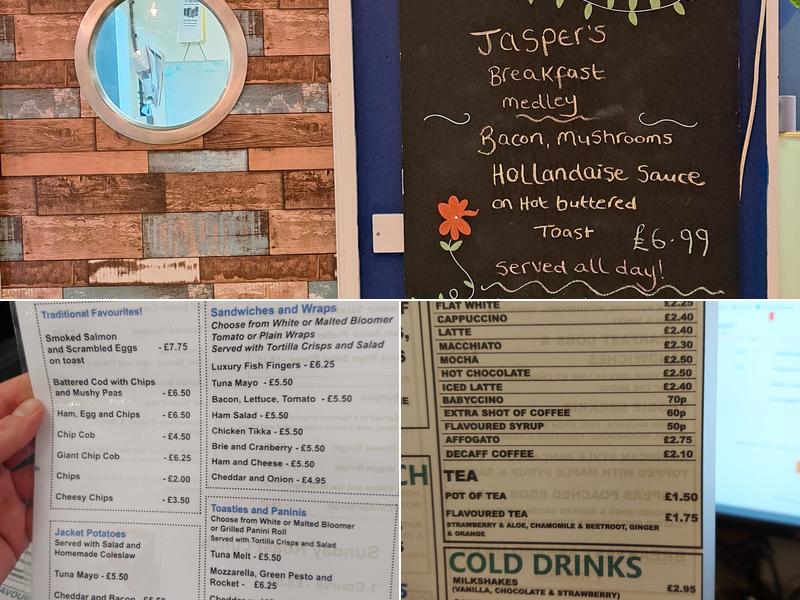 Jasper's
Breakfast
medley
Bacon, Mushrooms
Hollandaise Sauce
on Hot buttered
Toast £6.99
Served all day!
Traditional Favourites!
Smoked Salmon
and Scrambled Eggs
on toast - £7.75
Battered Cod with Chips
and Mushy Peas - £6.50
Ham, Egg and Chips - £6.50
Chip Cob - £4.50
Giant Chip Cob - £6.25
Chips - £2.00
Cheesy Chips - £3.50
Jacket Potatoes
Served with Salad and
Homemade Coleslaw
Tuna Mayo - £5.50
Cheddar and Bacon - £5.50
Sandwiches and Wraps
Choose from White or Malted Bloomer
Tomato or Plain Wraps
Served with Tortilla Crisps and Salad
Luxury Fish Fingers - £6.25
Tuna Mayo - £5.50
Bacon, Lettuce, Tomato - £5.50
Ham Salad - £5.50
Chicken Tikka - £5.50
Brie and Cranberry - £5.50
Ham and Cheese - £5.50
Cheddar and Onion - £4.95
Toasties and Paninis
Choose from White or Malted Bloomer
or Grilled Panini Roll
Served with Tortilla Crisps and Salad
Tuna Melt - £5.50
Mozzarella, Green Pesto and
Rocket - £6.25
FLAT WHITE £2.25
CAPPUCCINO £2.40
LATTE £2.40
MACCHIATO £2.30
MOCHA £2.50
HOT CHOCOLATE £2.50
ICED LATTE £2.40
BABYCCINO 70p
EXTRA SHOT OF COFFEE 60p
FLAVOURED SYRUP 50p
AFFOGATO £2.75
DECAFF COFFEE £2.10
TEA
POT OF TEA £1.50
FLAVOURED TEA £1.75
STRAWBERRY & ALOE, CHAMOMILE & BEETROOT, GINGER
& ORANGE
COLD DRINKS
MILKSHAKES £2.95
(VANILLA, CHOCOLATE & STRAWBERRY)